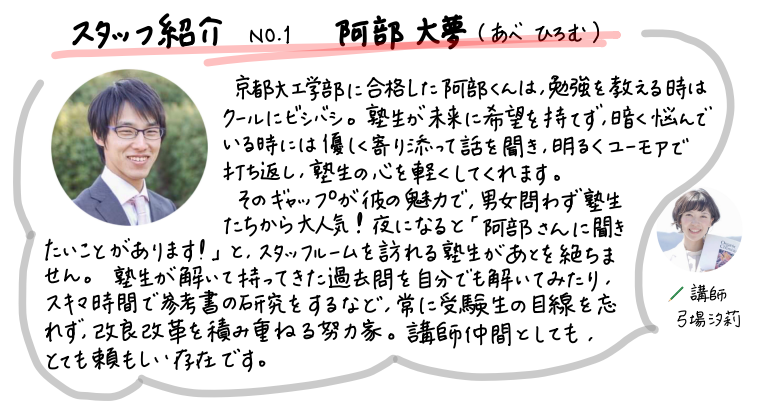 スタッフ紹介 NO.1 阿部 大夢 (あべ ひろむ)
京都大工学部に合格した阿部くんは、勉強を教える時は
クールにビシバシ。塾生が未来に希望を持てず、暗く悩んで
いる時には優しく寄り添って話を聞き、明るくユーモアで
打ち返し、塾生の心を軽くしてくれます。
そのギャップが彼の魅力で、男女問わず塾生
たちから大人気!夜になると「阿部さんに聞き
たいことがあります!」と、スタッフルームを訪れる塾生があとを絶ちま
せん。 塾生が解いて持ってきた過去問を自分でも解いてみたり、
スキマ時間で参考書の研究をするなど、常に受験生の目線を忘
れず、改良改革を積み重ねる努力家。講師仲間としても、
とても頼もしい存在です。
講師
弓場汐莉